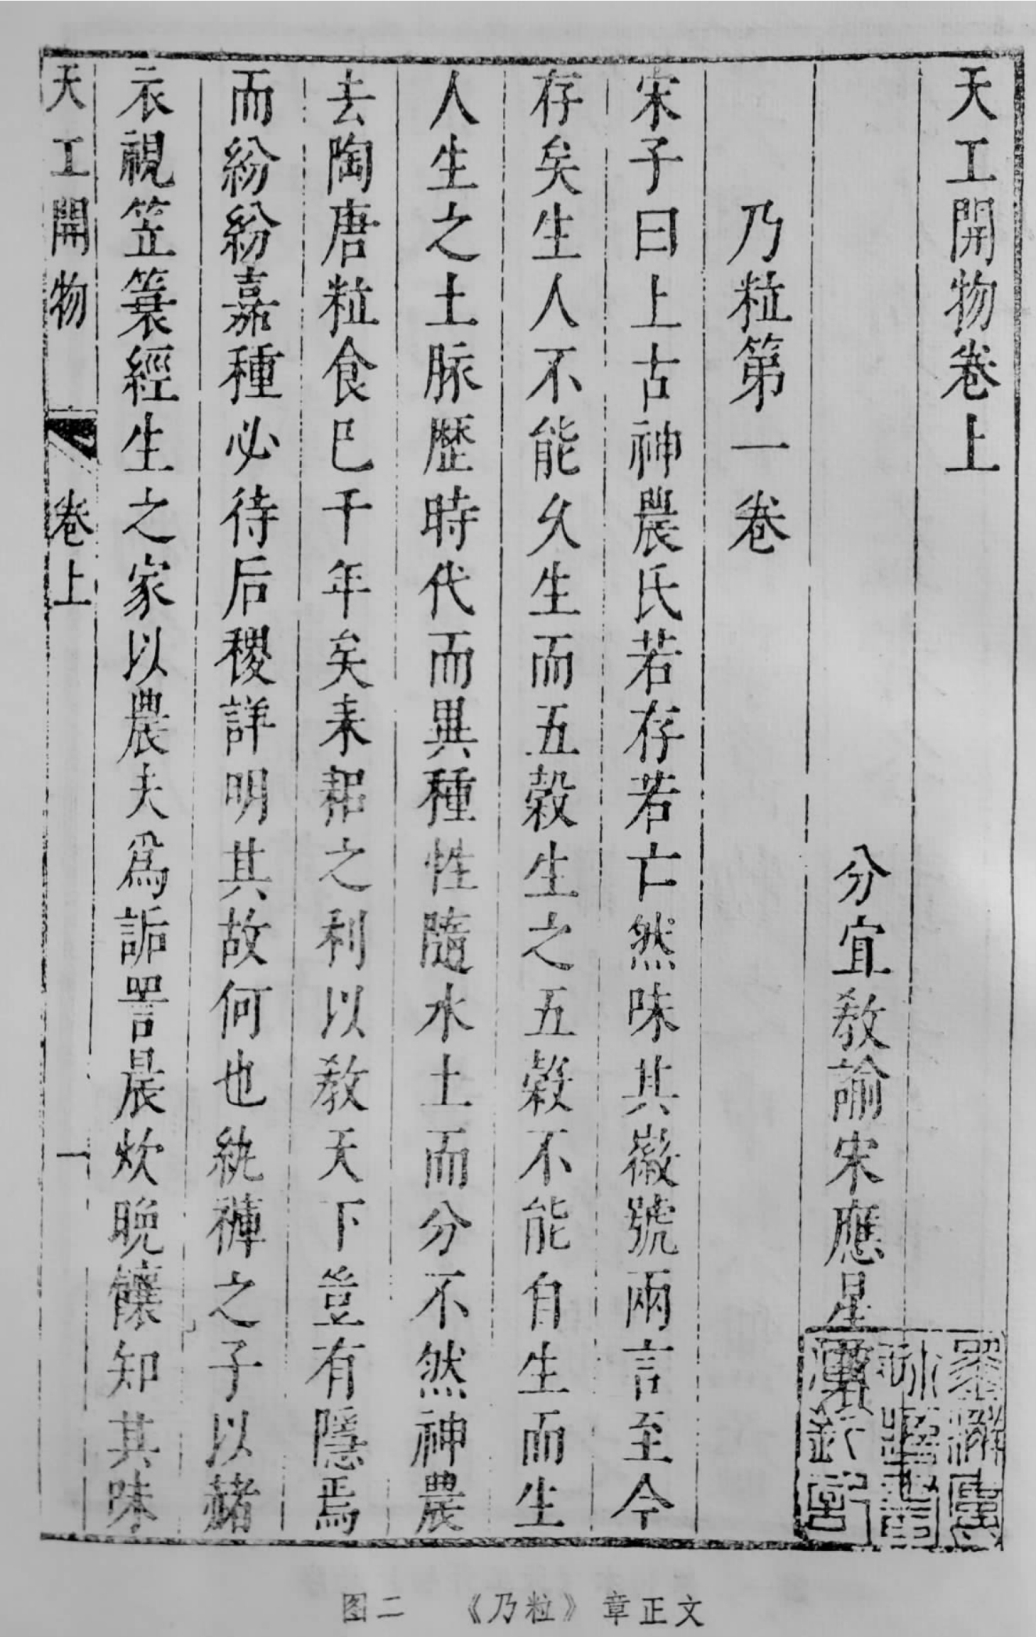 天工開物卷上
分宜敎諭宋應星
乃粒第一卷
宋子曰上古神農氏若存若亡然味其徽號兩言至今
存矣生人不能久生而五穀生之五穀不能自生而生
人生之土脉歷時代而異種性隨水土而分不然神農
去陶唐粒食已千年矣耒耜之利以敎天下豈有隱焉
而紛紛嘉種必待后稷詳明其故何也紈褲之子以赭
衣視笠簑經生之家以農夫爲詬詈晨炊晚饟知其味
天工開物 卷上 一
图二 《乃粒》章正文